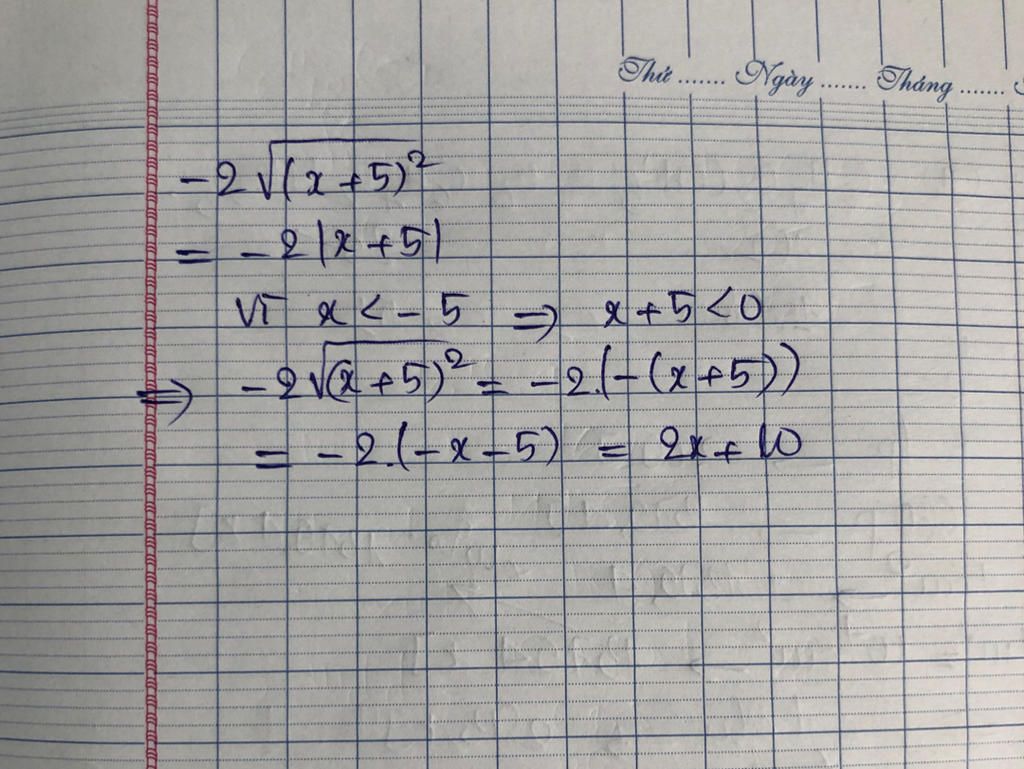 Thứ ....... Ngày ....... Tháng .......
-2√(x+5)²
= -2|x+5|
Vì x < -5 ⇒ x+5<0
⇒ -2√(x+5)² = -2.(-(x+5))
= -2.(-x-5) = 2x+10